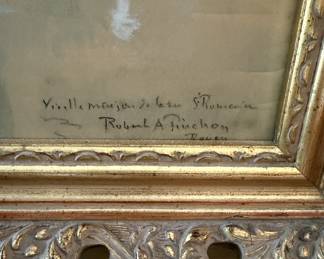 Vieille maison de la rue St Romain
Robert A Pinchon
Rouen